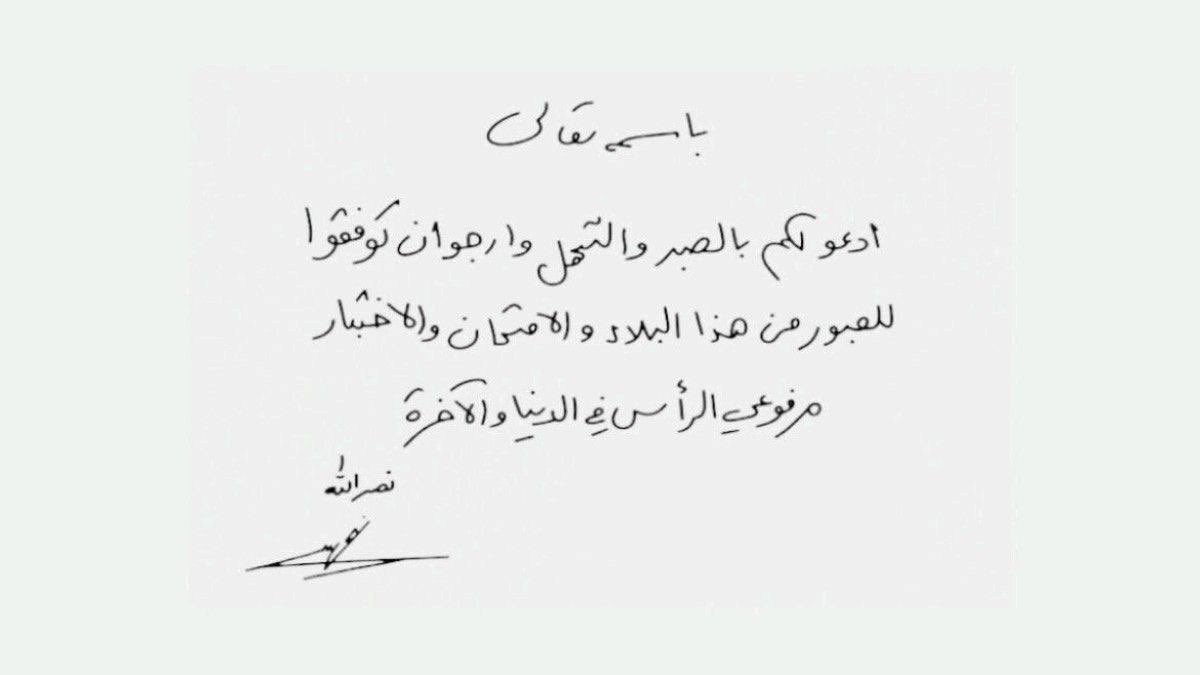 باسمه تعالى
ادعو لكم بالصبر والتحمل وارجو ان توفقوا
للعبور من هذا البلاء والامتحان والاختبار
مرفوعي الرأس في الدنيا والآخرة
نصرالله